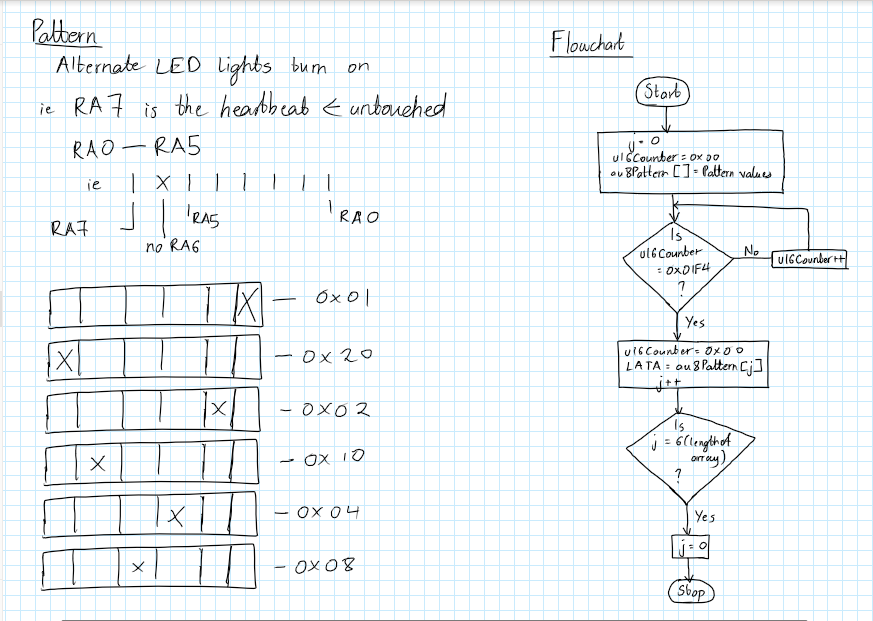 Pattern
Alternate LED lights turn on
ie RA7 is the heartbeat ← untouched
RA0 — RA5
ie | X | | | | | |
RA7
no RA6
RA5
RA0
X — 0x01
X — 0x20
X - 0x02
X - 0x10
X - 0x04
X - 0x08
Flowchart
Start
j = 0
u16Counter = 0x00
au8Pattern [] = Pattern values
Is
u16Counter
= 0x01F4
?
No
u16Counter++
Yes
u16Counter = 0x00
LATA = au8Pattern[j]
j++
Is
j = 6(length of
array)
?
Yes
j = 0
Stop